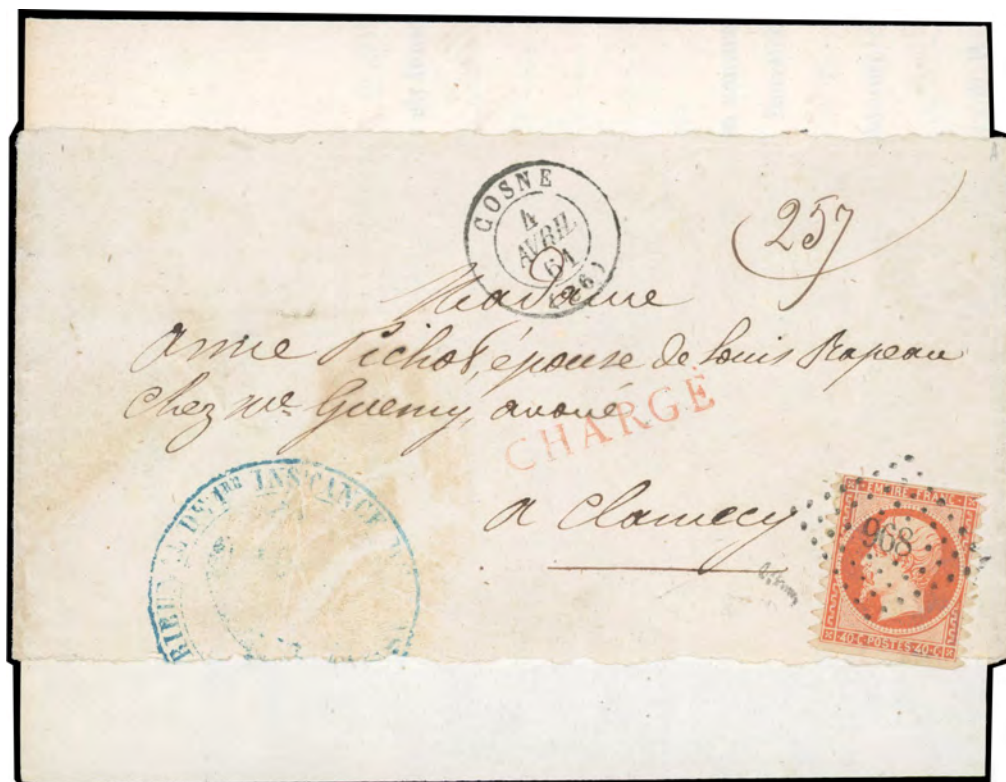 COSNE
4
AVRIL
61
(56)
257
Madame
Anne Pichot, épouse de Louis Rapeau
chez Me Guemy, avoué
CHARGÉ
a Clamecy
DE 1RE INSTANCE
EMPIRE FRANC
968
40·C·POSTES·40·C